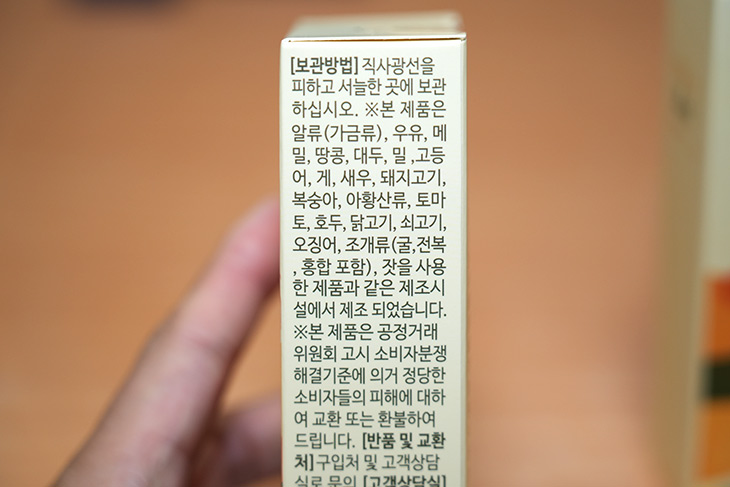 [보관방법] 직사광선을
피하고 서늘한 곳에 보관
하십시오. ※본 제품은
알류(가금류), 우유, 메
밀, 땅콩, 대두, 밀 ,고등
어, 게, 새우, 돼지고기,
복숭아, 아황산류, 토마
토, 호두, 닭고기, 쇠고기,
오징어, 조개류(굴,전복
, 홍합 포함), 잣을 사용
한 제품과 같은 제조시
설에서 제조 되었습니다.
※본 제품은 공정거래
위원회 고시 소비자분쟁
해결기준에 의거 정당한
소비자들의 피해에 대하
여 교환 또는 환불하여
드립니다. [반품 및 교환
처] 구입처 및 고객상담
실로 문의 [고객상담실]